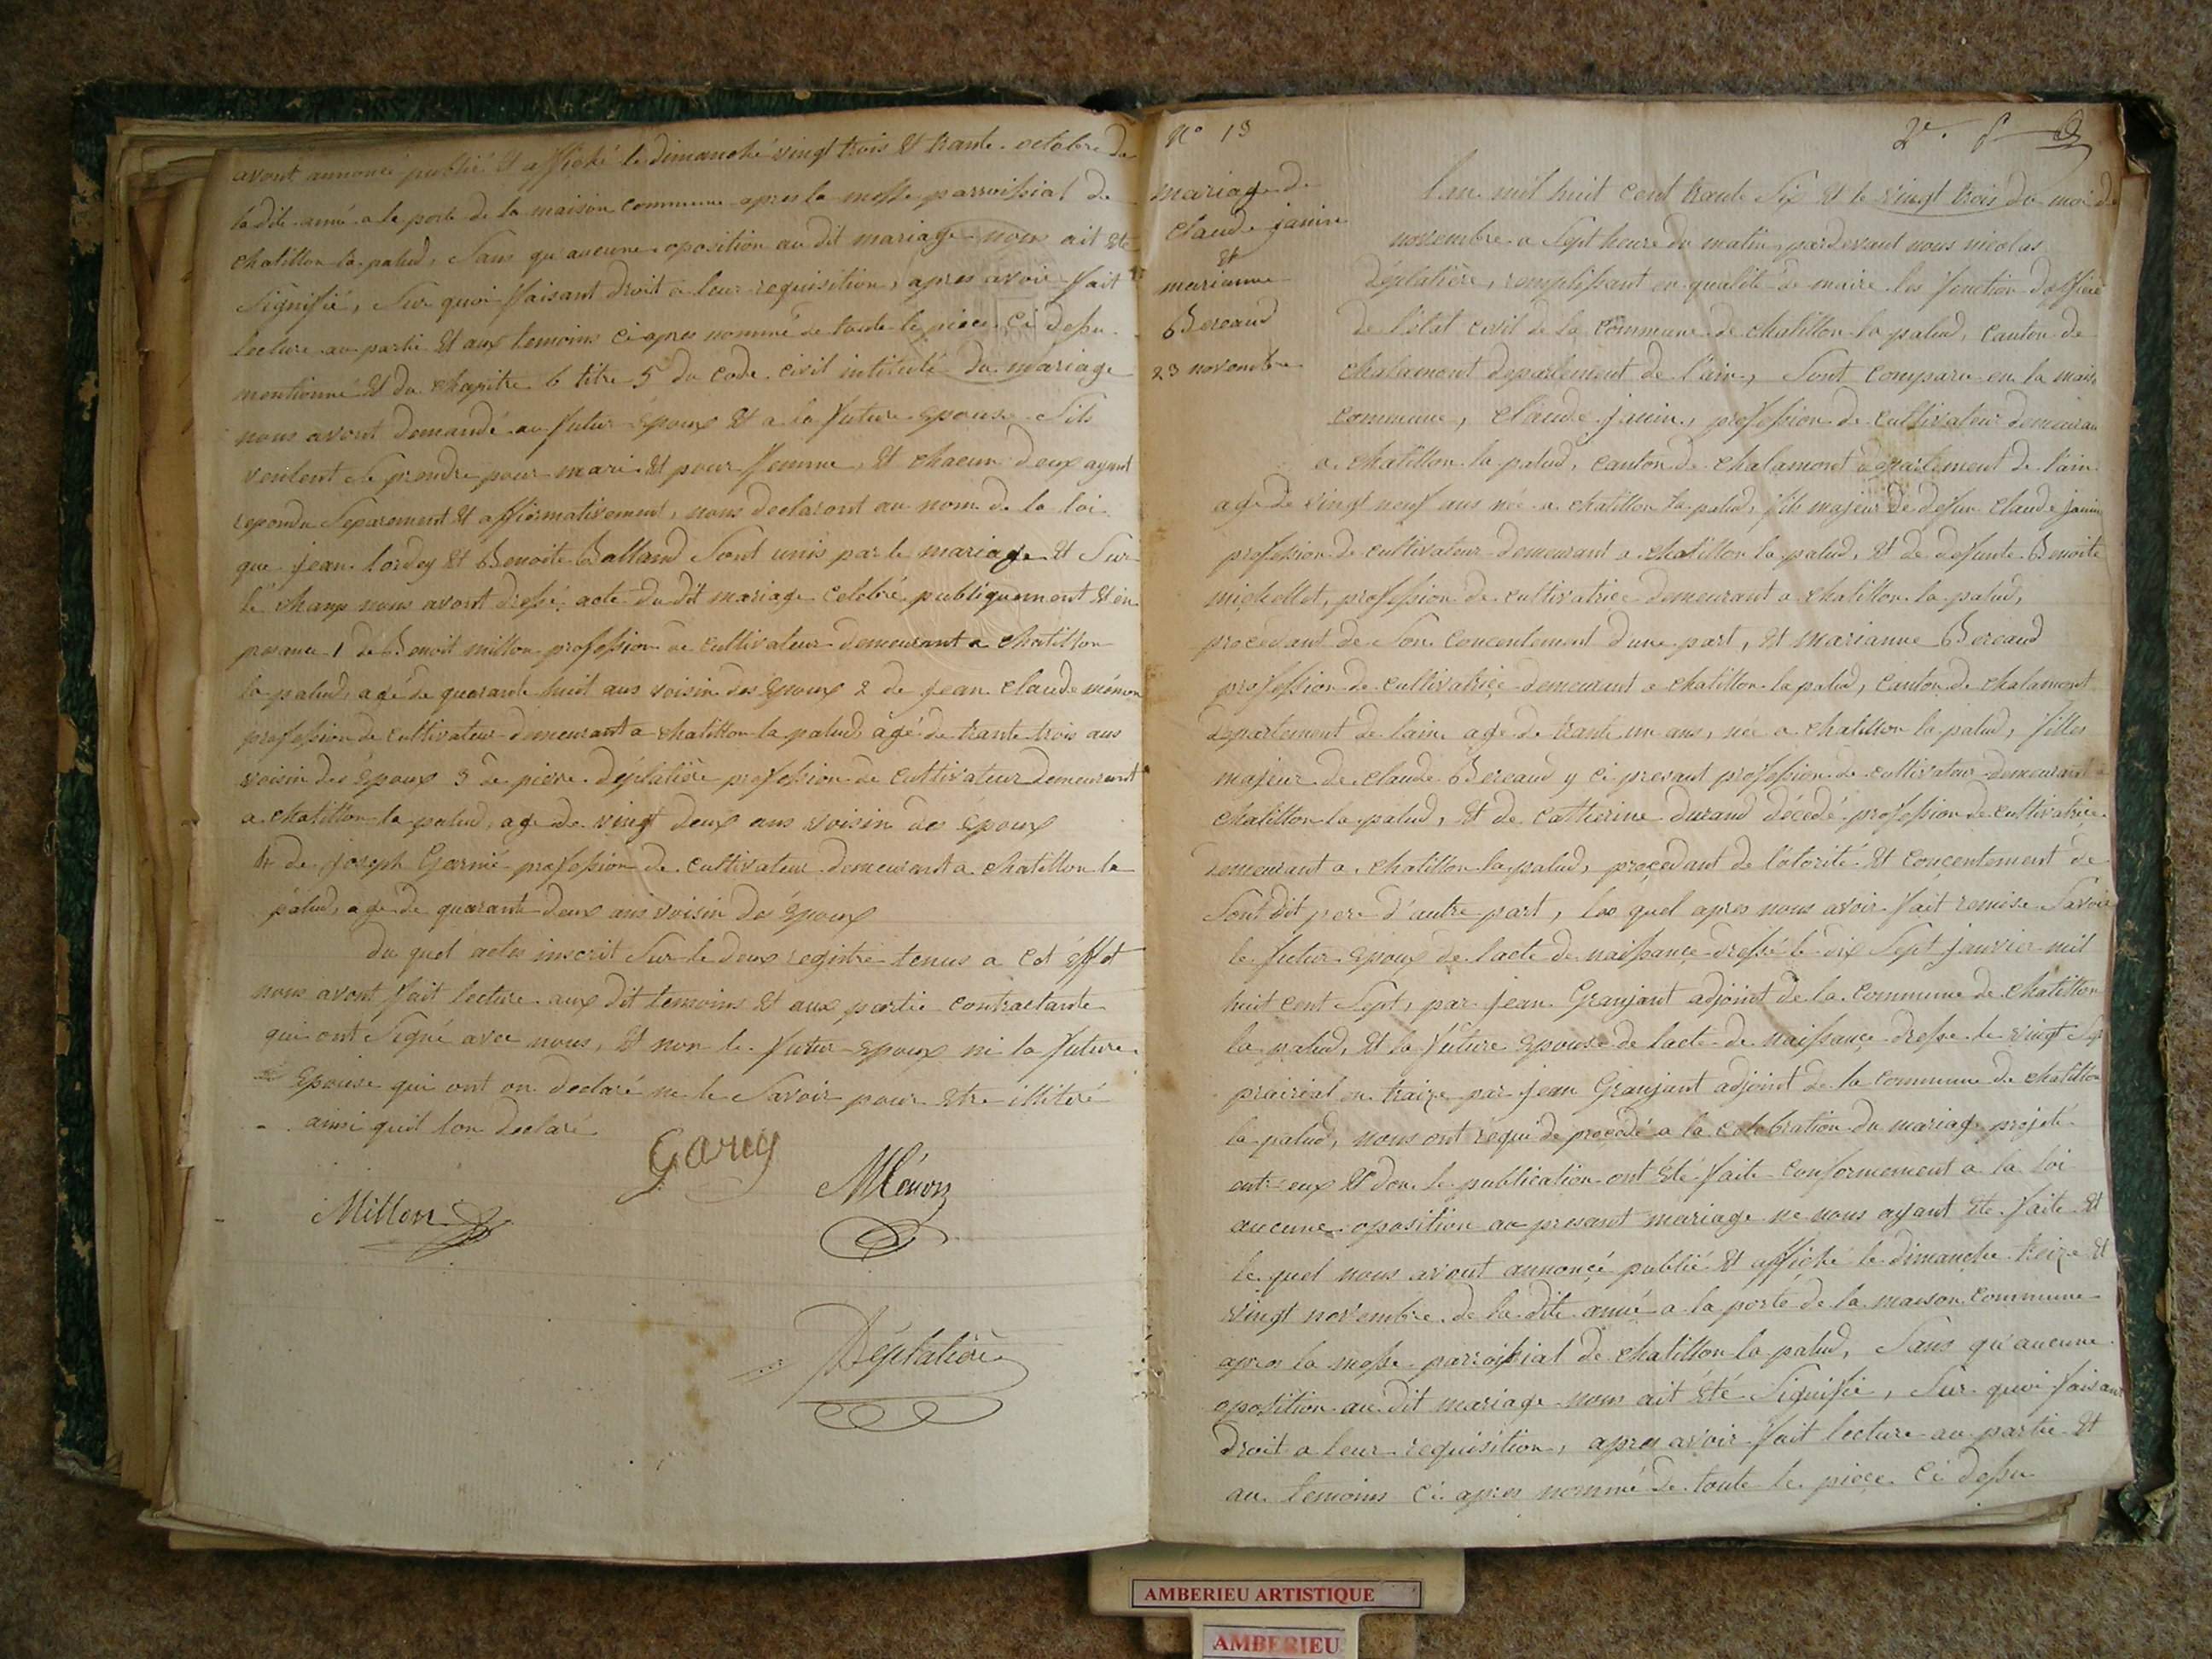 avont annoncé publié et affiché le dimanche vingt trois et trante octobre de
la dite anné a le porte de la maison commune apres la messe parroissial de
chatillon la palud, Sans qu'aucune oposition au dit mariage nous ait été
Signifié, Sur quoi faisant droit a leur requisition, apres avoir fait
lecture au partie et aux temoins ci apres nommé de toute le piece ci dessu
mentionné et du chapitre 6 titre 5 du code civil intitulé du mariage
nous avont demandé au futur époux et a la future épouse Sils
veulent se prendre pour mari et pour femme, et chacun deux ayant
repondu Separement et affirmativement, nous declaront au nom de la loi
que jean lordey et Benoite Balland Sont unis par le mariage et Sur
le champ nous avont dressé acte du dit mariage celebré publiquement et en
presance 1 de Benoit millon profession de cultivateur demeurant a chatillon
la palud, agé de quarante huit ans voisin des époux 2 de jean claudeménon
profession de cultivateur demeurant a chatillon la palud, agé de trante trois ans
voisin des époux 3 de pierre déplatière profession de cultivateur demeurant
a chatillon la palud, age de vingt deux ans voisin des époux
4 de joseph Garnie profession de cultivateur demeurant a chatillon la
palud, age de quarante deux ans voisin des époux
du quel actes inscrit Sur le deux registre tenus a cet éffet
nous avont fait lecture aux dit temoins et aux partie contractante
qui ont Signé avec nous, et non le futur époux ni la future
épouse qui ont on declaré ne le Savoir pour etre illitéré
ainsi quil lon declaré
Millon
Ménon
Déplatière
N° 13
mariage de
claude janin
et
marianne
Bercaud
23 novembre
2e. f
lan mil huit cent trante Six et le vingt trois du moi de
novembre a Sept heure du matin, pardevant nous nicolas
déplatière, remplissant en qualité de maire les fonction d'officié
de l'état civil de la commune de chatillon la palud, canton de
chalamont departement de l'ain, Sont comparu en la maison
commune, claude janin, profession de cultivateur demeuran
a chatillon la palud, canton de chalamont departement de l'ain
age de vingt neuf ans né a chatillon la palud, fils majeur de defun claude janin
profession de cultivateur demeurant a chatillon la palud, et de defunte Benoite
michellet, profession de cultivatrice demeurant a chatillon la palud,
procedant de Son concentement d'une part, et marianne Bercaud
profession de cultivatriçe demeurant a chatillon la palud, canton de chalamont
departement de l'ain age de trante un ans, née a chatillon la palud, filles
majeur de claude Bercaud y ci presant profession de cultivateur demeurant a
chatillon la palud, et de catherine durand décedé profession de cultivatriçe
demeurant a chatillon la palud, proçedant de l'otorité et conçentement de
Sont dit pere d'autre part, les quel apres nous avoir fait remise Savoir
le futur époux de l'acte de naissançe dressé le dix Sept janvier mil
huit cent Sept, par jean Granjant adjoint de la commune de chatillon
la palud, et la future épouse de lacte de naissançe dresse le vingt Sep
prairial en traize par jean Granjant adjoint de la commune de chatillon
la palud, nous ont requi de procédé a la celebration du mariage projeté
entr'eux et don le publication ont été faite conformement a la loi
aucune oposition au presant mariage ne nous ayant été faite et
le quel nous avont annonçé publié et affiché le dimanche treize et
vingt novembre de la dite anné a la porte de la maison commune
apres la messe parroissial de chatillon la palud, Sans qu'aucune
oposition au dit mariage nous ait été Signifié, Sur quoi faisant
droit a leur requisition, apres avoir fait lecture au partie et
au temoins ci apres nommé de toute le pieçe ci dessu
AMBERIEU ARTISTIQUE
AMBERIEU